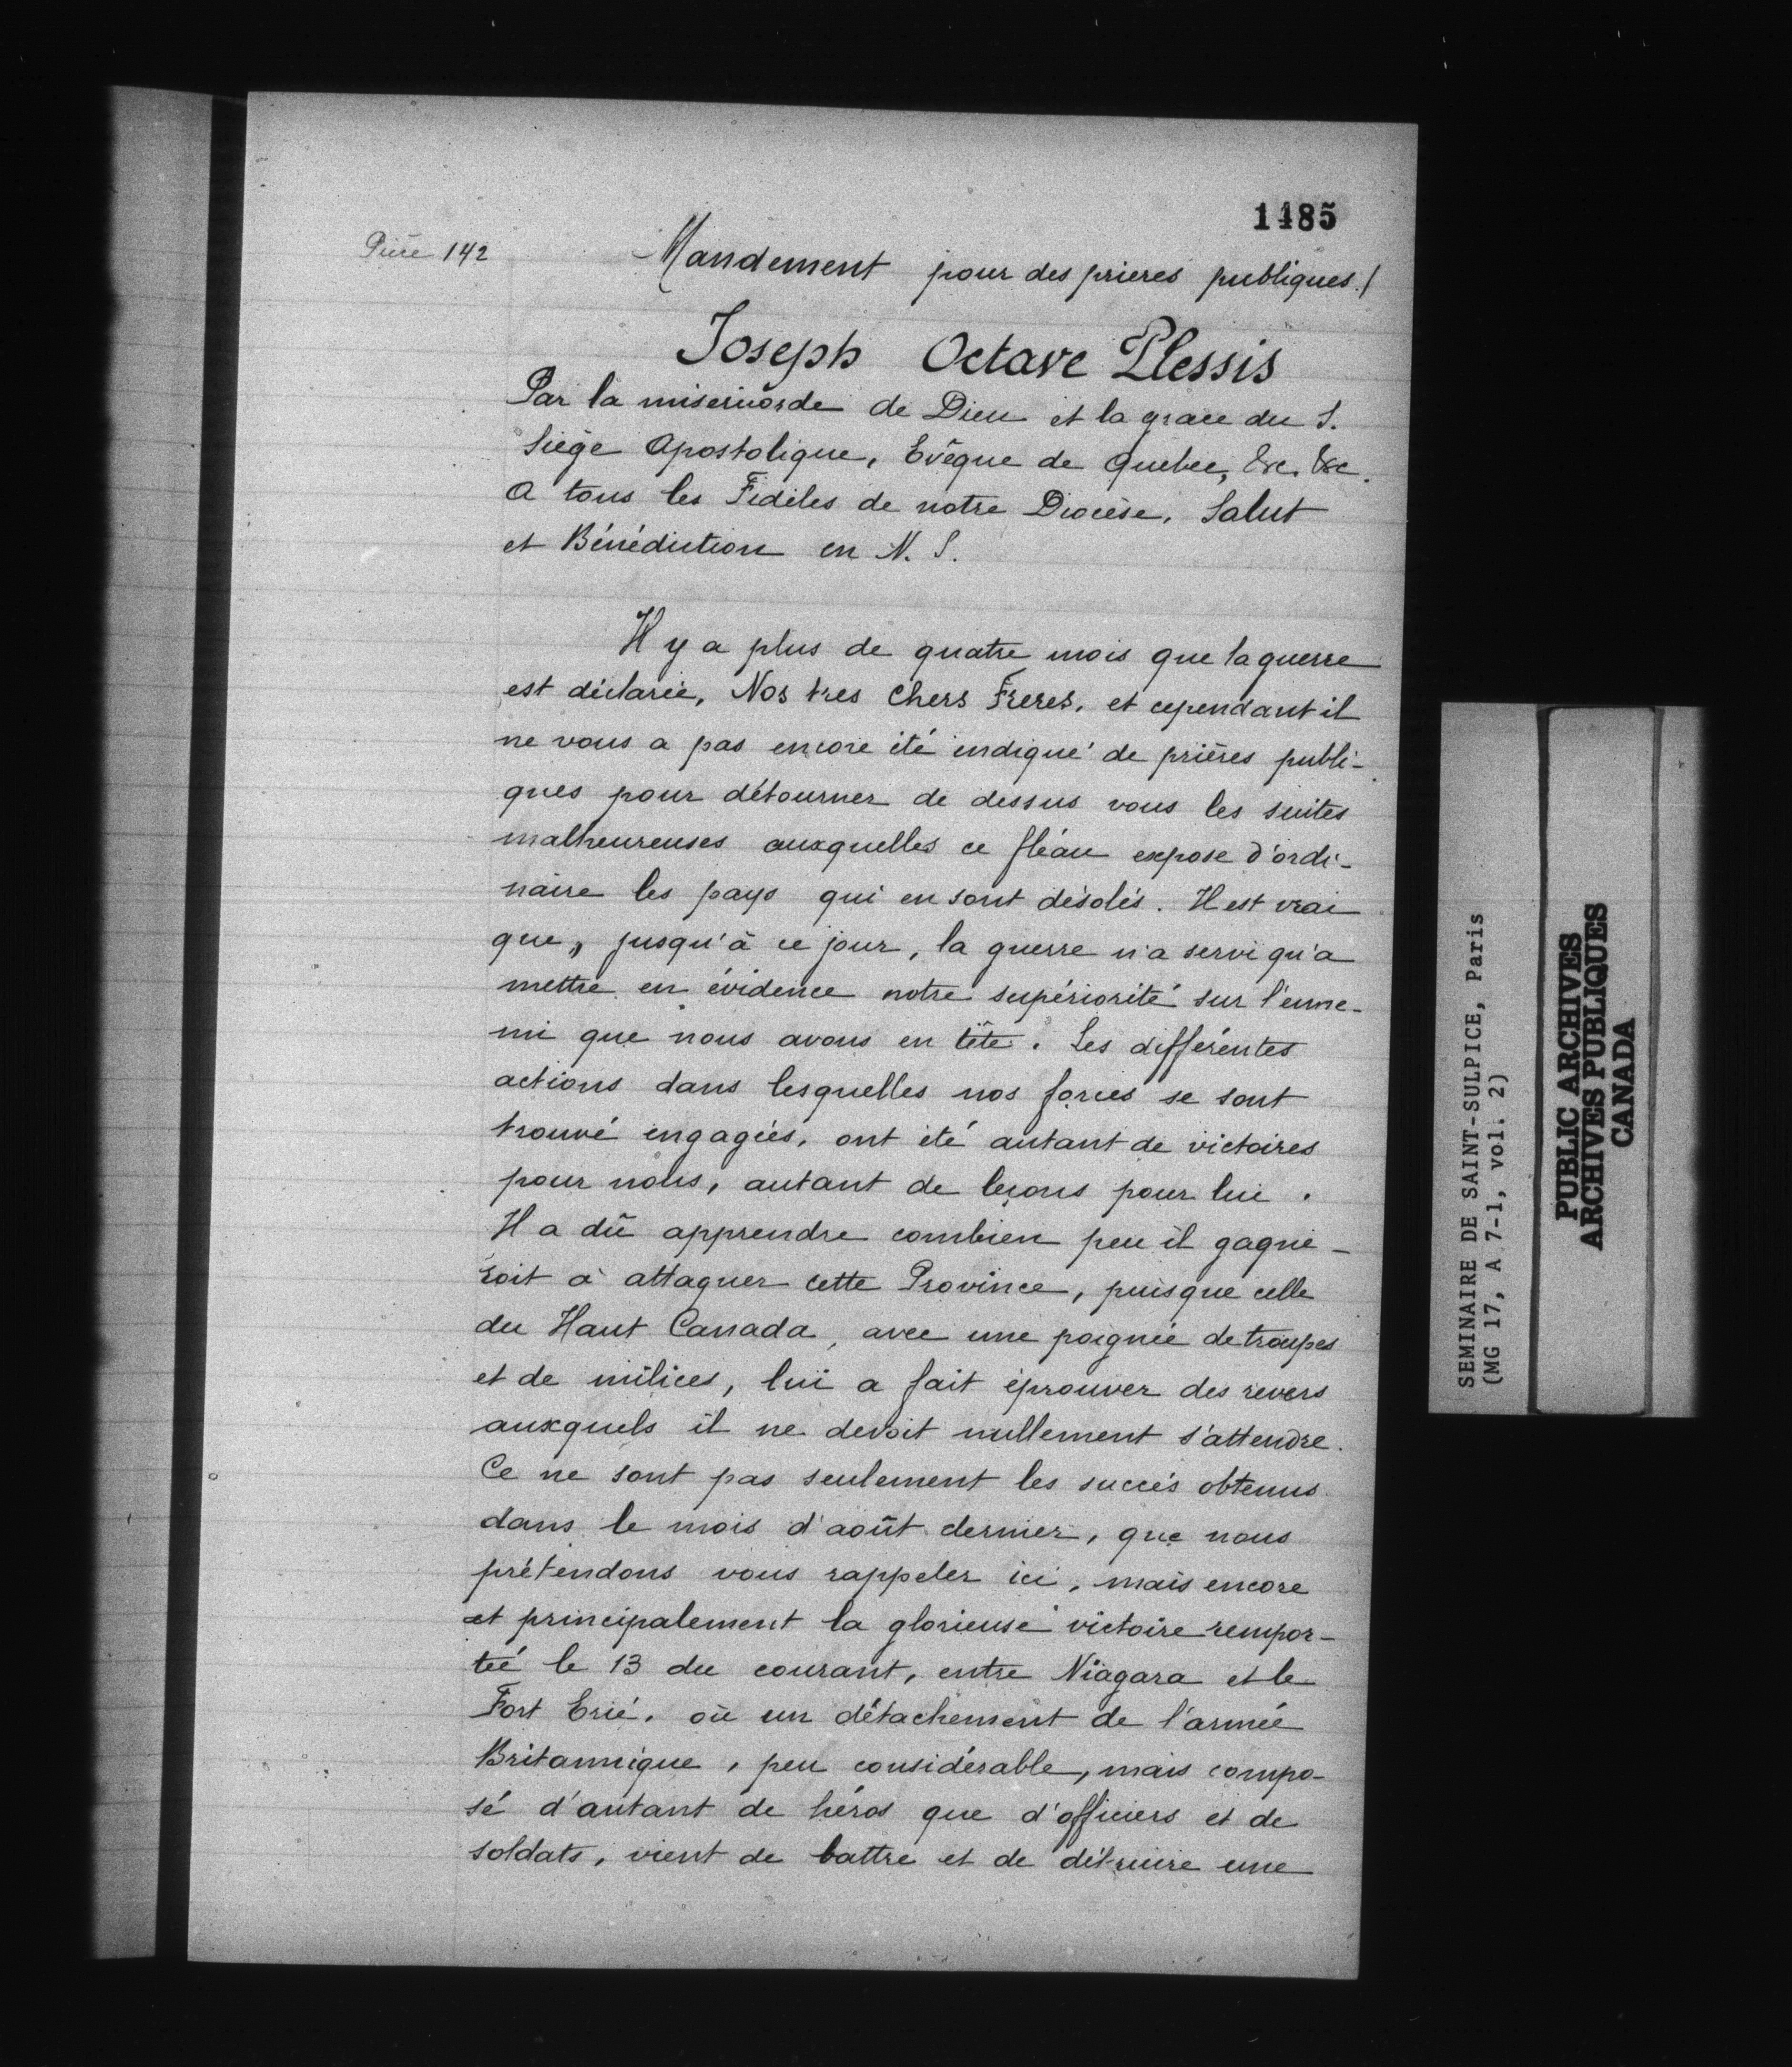 1485
Pièce 142
Mandement pour des prieres publiques./
Joseph Octave Plessis
Par la misericorde de Dieu et la grace du S.
Siège Apostolique, Evêque de Quebec, &c. &c.
A tous les Fidèles de notre Diocèse, Salut
et Bénédiction en N. S.
Il y a plus de quatre mois que la guerre
est déclarée, Nos tres Chers Freres, et cependant il
ne vous a pas encore été indiqué de prières publi-
ques pour détourner de dessus vous les suites
malheureuses auxquelles ce fléau expose d'ordi-
naire les pays qui en sont désolés. Il est vrai
que, jusqu'à ce jour, la guerre n'a servi qu'a
mettre en évidence notre supériorité sur l'enne-
mi que nous avons en tête. Les différentes
actions dans lesquelles nos forces se sont
trouvé engagées, ont été autant de victoires
pour nous, autant de leçons pour lui.
Il a dû apprendre combien peu il gagne-
roit à attaquer cette Province, puisque celle
du Haut Canada, avec une poignée de troupes
et de milices, lui a fait éprouver des revers
auxquels il ne devoit nullement s'attendre.
Ce ne sont pas seulement les succès obtenus
dans le mois d'août dernier, que nous
prétendons vous rappeler ici, mais encore
et principalement la glorieuse victoire rempor-
tée le 13 du courant, entre Niagara et le
Fort Erié, où un détachement de l'armée
Britannique, peu considérable, mais compo-
sé d'autant de héros que d'officiers et de
soldats, vient de battre et de détruire une
SEMINAIRE DE SAINT-SULPICE, Paris
(MG 17, A 7-1, vol. 2)
PUBLIC ARCHIVES
ARCHIVES PUBLIQUES
CANADA